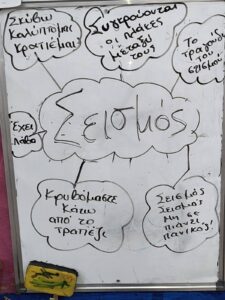 Σκύβω
Καλύπτομαι
Κρατιέμαι
Συγκρούονται
οι πλάκες
μεταξύ
τους
Το
τραγούδι
του
σεισμού
Σεισμός
Έχει
λάβα
Κρυβόμαστε
κάτω
από το
τραπέζι
Σεισμός
σεισμός
μη σε
πιάνει
πανικός!